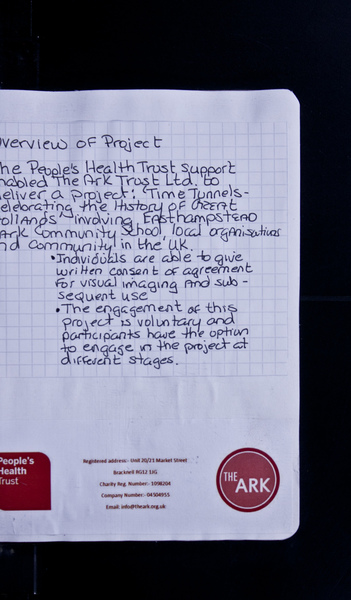 verview of Project
he People's Health Trust support
nabled The Ark Trust Ltd. to
eliver a project: 'Time Tunnels-
elebrating the History of GREAT
ollands' involving EASTHAMPSTEAD
ARK Community School, local organisations
nd community in the UK.
• Individuals are able to give
written consent of agreement
for visual imaging and sub-
sequent use
• The engagement of this
project is voluntary and
participants have the option
to engage in the project at
different stages.
People's
Health
Trust
Registered address:- Unit 20/21 Market Street
Bracknell RG12 1JG
Charity Reg. Number:- 1098204
Company Number:- 04504955
Email: info@theark.org.uk
THE
ARK